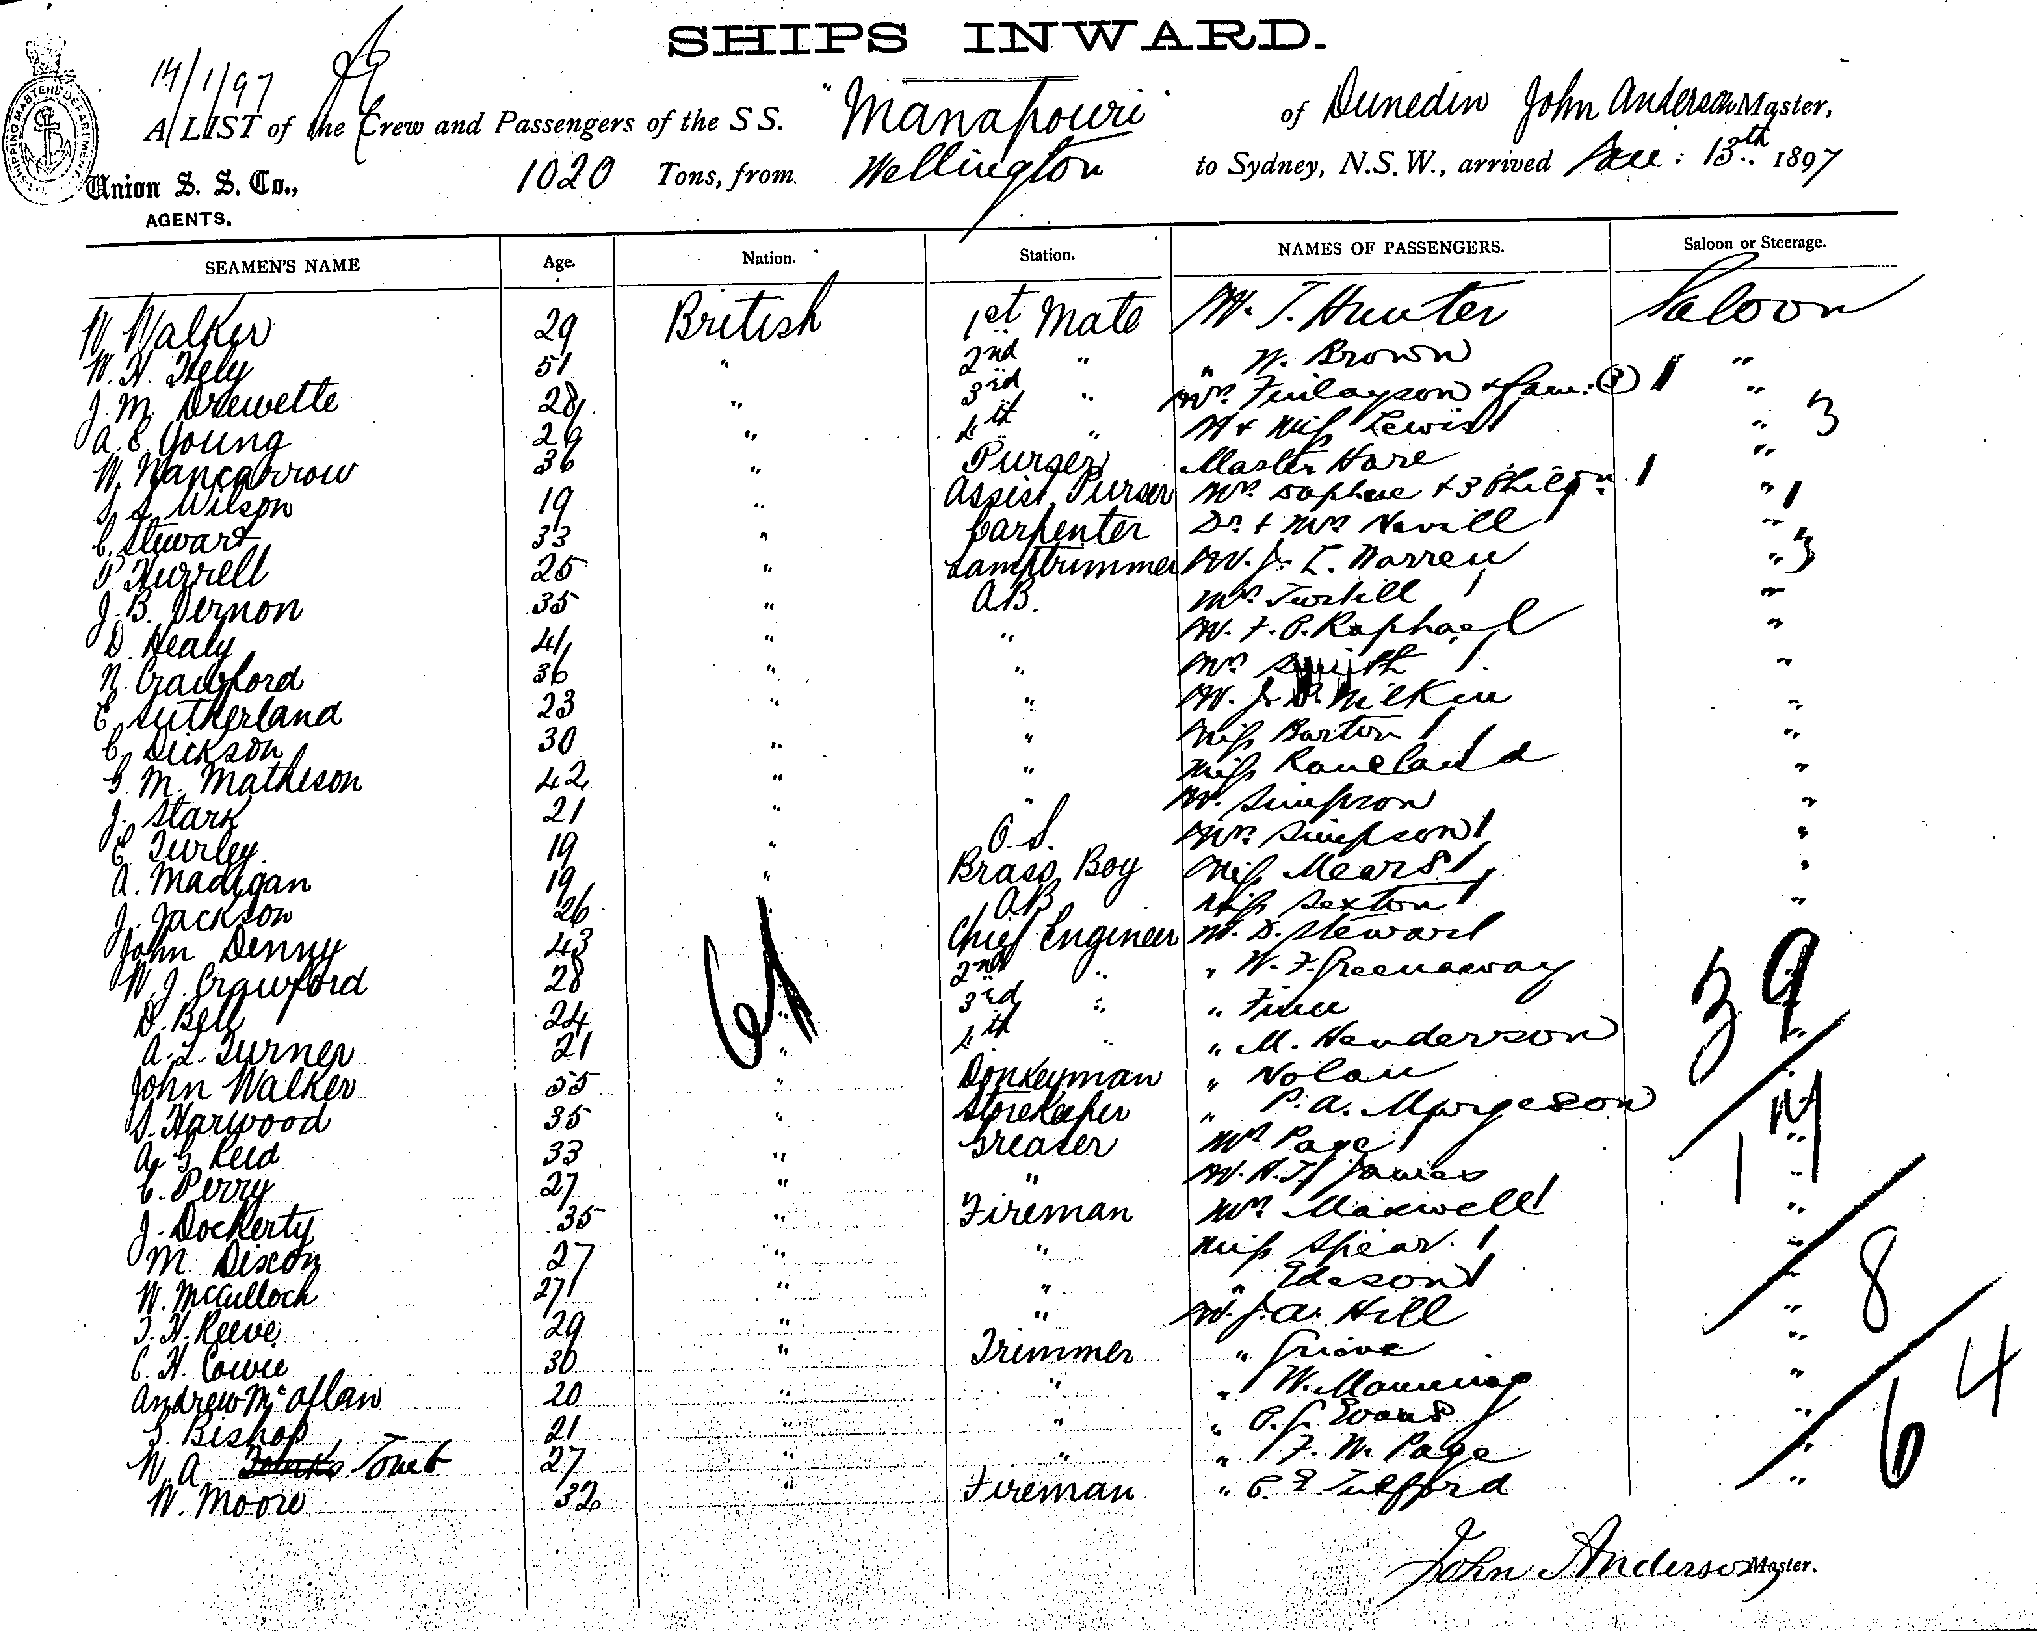 SHIPS INWARD.
14/1/97
A LIST of the Crew and Passengers of the S S. "Manapouri" of Dunedin John Anderson Master,
Union S. S. Co., AGENTS. 1020 Tons, from Wellington to Sydney, N.S.W., arrived Jan: 13th 1897
SEAMEN'S NAME Age. Nation. Station. NAMES OF PASSENGERS. Saloon or Steerage.
W Walker 29 British 1st Mate Mr. T. Hunter Saloon
W. H. Hely 51 " 2nd " " W. Brown "
J. M. Drewette 28 " 3rd " Mrs Finlayson & fam: 1 "
A. E. Young 29 " 4th " Mr & Miss Lewis " 3
W. Nancarrow 36 " Purser Master Hare "
Wilson 19 " Assist. Purser Mrs & 3 1 " 1
C. Stewart 33 " Carpenter Dr. & Mrs Nevill "
Hurrell 25 " Lamptrimmer Mr. J. L. Warren " 3
J. B. Vernon 35 " A.B. Mrs "
D. Healy 41 " " Mr. F. P. Raphael "
N. Crawford 36 " " Mrs Smith "
E. Sutherland 23 " " Mr. J. Wilkin "
C. Dickson 30 " " Miss Barton "
G. M. Matheson 42 " " Miss "
J. Stark 21 " " Mr. Simpson "
E. Turley 19 " O. S. Mrs Simpson "
A. Madigan 19 " Brass Boy Miss Mears "
J. Jackson 26 A.B. Miss Sexton "
John Denny 43 Chief Engineer Mr. D. Steward
W. J. Crawford 28 61 2nd " " W. F. Greenaway 39
D. Bell 24 " 3rd " " Finn "
A. L. Turner 21 " 4th " " M. Henderson "
John Walker 55 " Donkeyman " Nolan "
S. Harwood 35 " Storekeeper " P. A. "
A. G Reid 33 " Greaser Mrs Page "
C. Perry 27 " " Mr. James "
J. Dockerty 35 " Fireman Mrs Maxwell "
M. Dixon 27 " " Miss Spear. "
W. McCulloch 27 " " " Edeson " 8
T. H. Reeve 29 " " Mr. J. A. Hill "
C. H. Cowie 30 " Trimmer " Grieve "
Andrew McAflaw 20 " " " W. Manning " 4
S. Bishop 21 " " " Evans "
W. A. Tonet 27 " " " F. W. Page " 6
W. Moore 32 " Fireman " "
John Anderson Master.